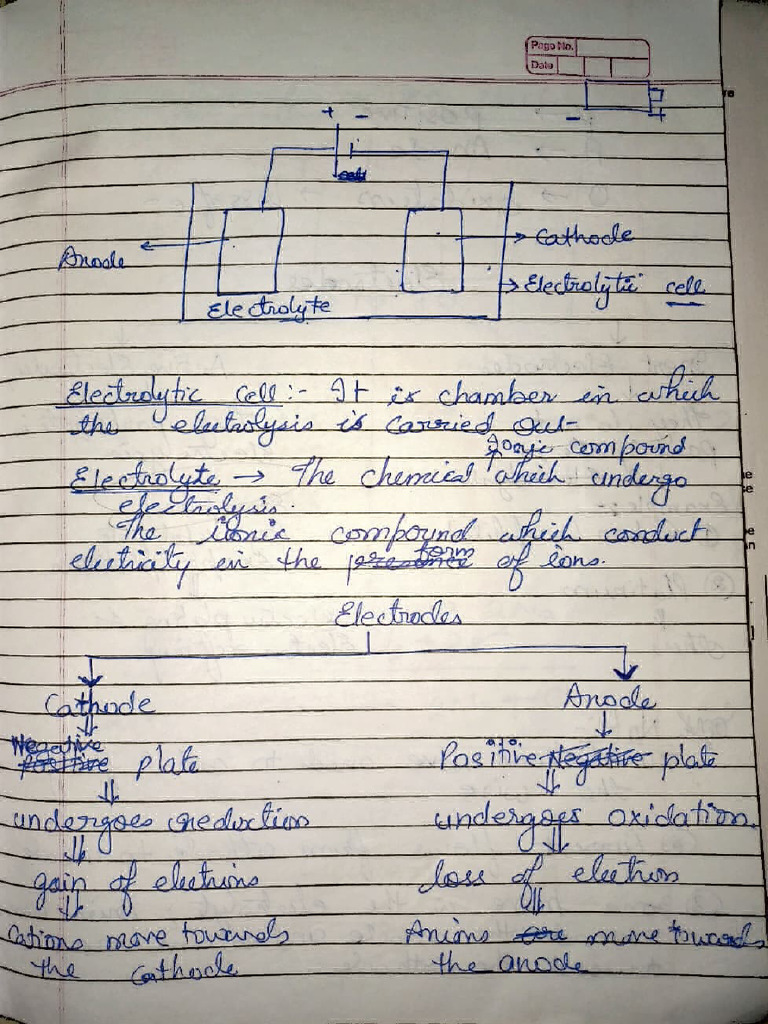 Page No.
Date
+ -
- +
Anode
Cathode
Electrolytic cell
Electrolyte
Electrolytic Cell :- It is chamber in which
the electrolysis is carried out-
Ionic compound
Electrolyte → The chemical which undergo
electrolysis.
The ionic compound which conduct
electricity in the form of ions.
Electrodes
Cathode Anode
Negative plate Positive plate
undergoes reduction undergoes oxidation.
gain of electrons loss of electron
Cations move towards Anions move towards
the Cathode the anode